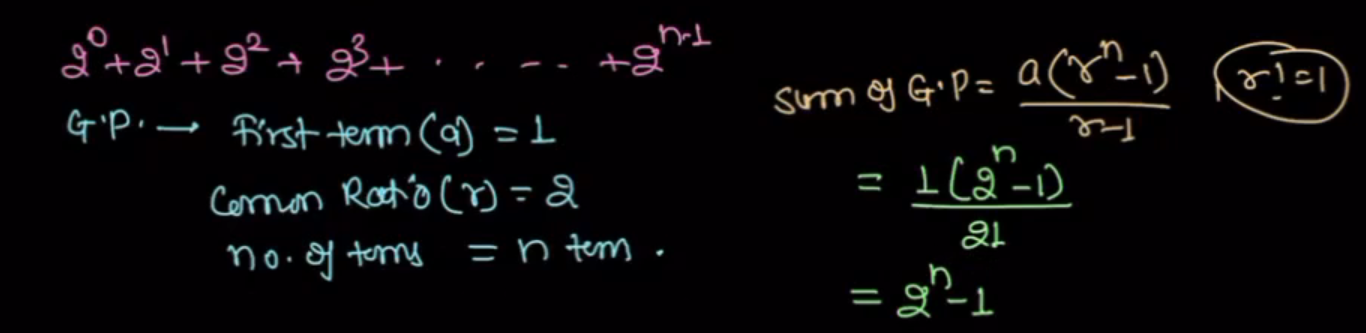 2^0 + 2^1 + 2^2 + 2^3 + . . - - . + 2^{n-1}
G.P. → First term (a) = 1
Common Ratio (r) = 2
no. of terms = n term .
Sum of G.P = a(r^n - 1) / r-1 r! = 1
= 1(2^n - 1) / 21
= 2^n - 1